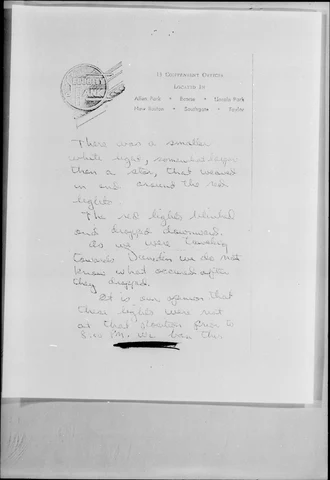 12 Convenient Offices
Located In
Allen Park • Romulus • Lincoln Park
New Boston • Southgate • Taylor
There was a smaller
white light, somewhat larger
than a star, that weaved
in and around the red
lights.
The red lights blinked
and dropped downward.
As we were traveling
towards Dearborn we do not
know what occured after
they dropped.
It is our opinion that
these lights were not
at that location prior to
8:10 PM. We